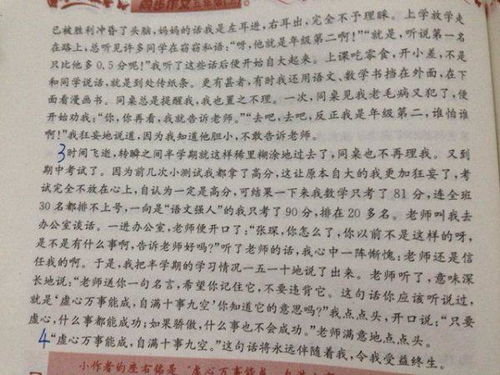 已被胜利冲昏了头脑,妈妈的话我是左耳进,右耳出,完全不予理睬。上学放学走
在路上,总听见许多同学在窃窃私语:“呀,他就是年级第二啊!”“就是,听说第一名
只比他多0.5分呢!”我听了这些话后便开始自大起来。上课吃零食,开小差,不是
和同学说话,就是到处传纸条。更有甚者,有时我还用语文、数学书挡在外面,在下
面看漫画书。同桌总是提醒我,我也置之不理。一次,同桌见我老毛病又犯了,便
开始劝我:“你,你再看,我就告诉老师。”“去吧,去吧,反正我是年级第二,谁怕谁
啊!”我狂妄地说道,因为我知道他胆小,不敢告诉老师。
3时间飞逝,转瞬之间半学期就这样稀里糊涂地过去了,同桌也不再理我。又到
期中考试了。因为前几次小测试我都拿了高分,这让原本自大的我更加狂妄了,考
试完全不放在心上,自认为一定是高分,可结果一下来我数学只考了81分,连全班
30名都排不上号,一向是“语文强人”的我只考了90分,排在20多名。老师叫我去
办公室谈话。一进办公室,老师便开口了:“张琛,你怎么了,你以前不是这样的呀,
是不是有什么事啊,告诉老师好吗?”听了老师的话,我心中一阵惭愧:老师还是信
任我的啊。于是,我把半学期的学习情况一五一十地说了出来。老师听了,意味深
长地说:“老师送你一句名言,希望你记住它,不要违背它。这句话你应该听说过,
就是‘虚心万事能成,自满十事九空’你知道它的意思吗?”我点点头,开口说:“只要
虚心,什么事都能成功;如果骄傲,什么事也不会成功。”老师满意地点点头。
4“虚心万事能成,自满十事九空。”这句话将永远伴随着我,令我受益终生。
小作者的座右铭是“虚心万事能成